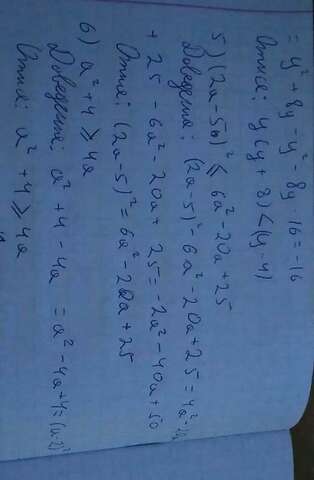 = y² + 8y - y² - 8y - 16 = -16
Отже: y(y + 8) < (y - 4)
5) (2a - 5)² ≤ 6a² - 20a + 25
Доведення: (2a - 5)² - 6a² - 20a + 25 = 4a² -
+ 25 - 6a² - 20a + 25 = -2a² - 40a + 50
Отже: (2a - 5)² = 6a² - 20a + 25
6) a² + 4 ≥ 4a
Доведення: a² + 4 - 4a = a² - 4a + 4 = (a - 2)²
Отже: a² + 4 ≥ 4a